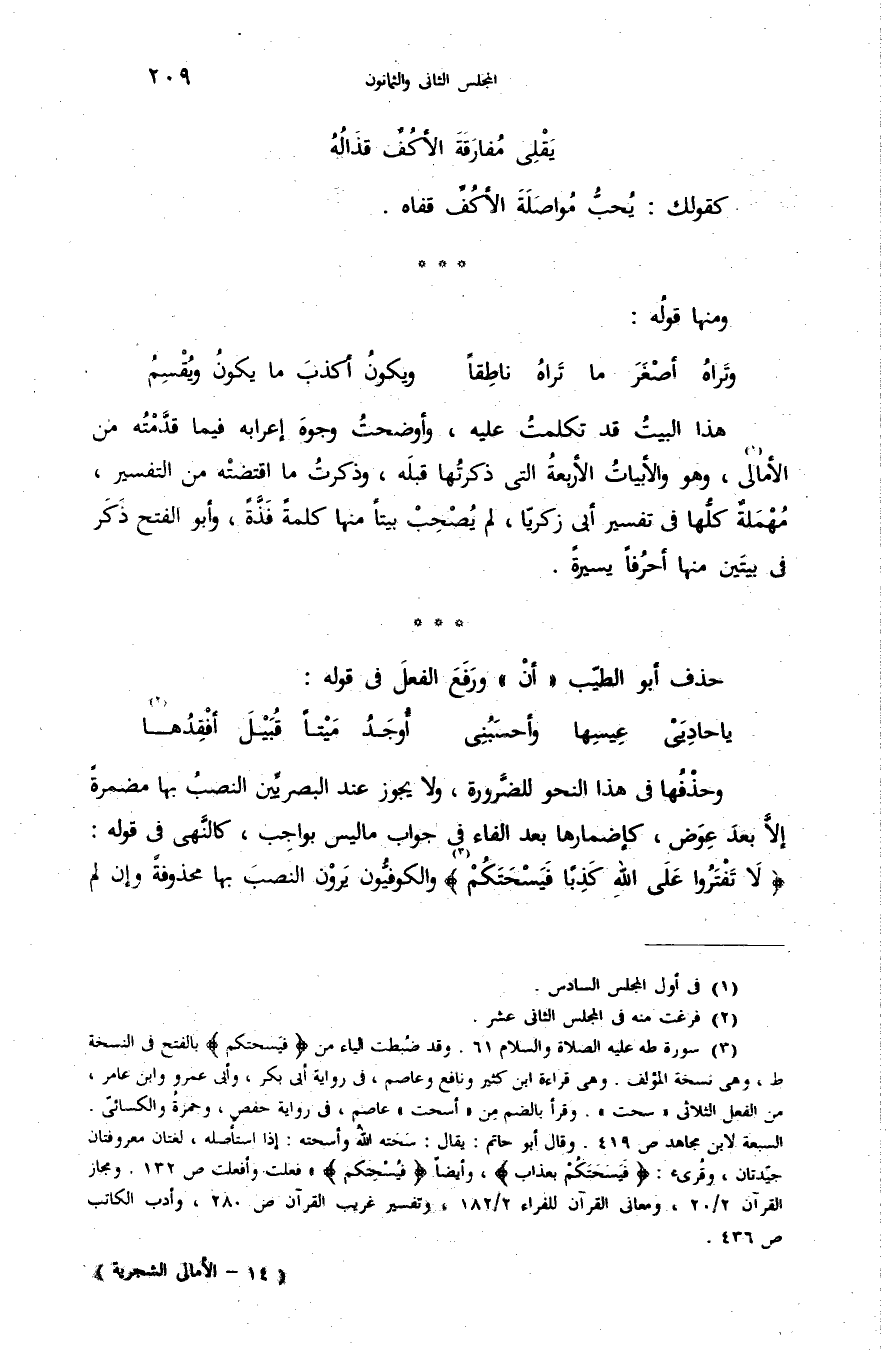 المجلس الثانى والثمانون ٢٠٩
يَقْلِى مُفارَقَةَ الأكُفِّ قذَالُهُ
كقولك : يُحبُّ مُواصَلَةَ الأكُفِّ قفاه .
* * *
ومنها قولُه :
وتَراهُ أصْغَرَ ما تَراهُ ناطِقاً ويكونُ أكذبَ ما يكونُ ويُقْسِمُ
هذا البيتُ قد تكلمتُ عليه ، وأوضحتُ وجوهَ إعرابه فيما قدَّمْتُه من
الأمالى(١) ، وهو والأبياتُ الأربعةُ التى ذكرتُها قبلَه ، وذكرتُ ما اقتضتْه من التفسير ،
مُهْمَلةٌ كلُّها فى تفسير أبى زكريّا ، لم يُصْحِبْ بيتاً منها كلمةً فَذَّةً ، وأبو الفتح ذَكَر
فى بيتَين منها أحرُفاً يسيرةً .
* * *
حذف أبو الطيّب « أنْ » ورَفَعَ الفعلَ فى قوله :
ياحادِيَىْ عِيسِها وأحسَبُنِى أُوجَـدُ مَيْتـاً قُبَيْـلَ أفْقِدُهـا(٢)
وحذْفُها فى هذا النحو للضَّرورة ، ولا يجوز عند البصريِّين النصبُ بها مضمرةً
إلاَّ بعدَ عِوَض ، كإضمارها بعد الفاء فى جواب ماليس بواجب ، كالنَّهى فى قوله :
﴿ لَا تَفْتَرُوا عَلَى اللهِ كَذِبًا فَيَسْحَتَكُمْ ﴾(٣) والكوفيُّون يَروْن النصبَ بها محذوفةً وإن لم
(١) فى أول المجلس السادس .
(٢) فرغت منه فى المجلس الثانى عشر .
(٣) سورة طه عليه الصلاة والسلام ٦١ . وقد ضُبطت الياء من ﴿ فيَسحتكم ﴾ بالفتح فى النسخة
ط ، وهى نسخة المؤلف . وهى قراءة ابن كثير ونافع وعاصم ، فى رواية أبى بكر ، وأبى عمرو وابن عامر ،
من الفعل الثلاثى « سحت » . وقرأ بالضم مِن « أسحت » عاصم ، فى رواية حفص ، وحمزةُ والكسائىّ .
السبعة لابن مجاهد ص ٤١٩ . وقال أبو حاتم : يقال : سَحَته اللهُ وأسحته : إذا استأصله ، لغتان معروفتان
جيّدتان ، وقُرىء : ﴿ فَيَسحَتَكُمْ بعذاب ﴾ ، وأيضاً ﴿ فيُسْحِتَكم ﴾ » فعلت وأفعلت ص ١٣٢ . ومجاز
القرآن ٢٠/٢ ، ومعانى القرآن للفراء ١٨٢/٢ ، وتفسير غريب القرآن ص ٢٨٠ ، وأدب الكاتب
ص ٤٣٦ .
( ١٤ – الأمالى الشجرية )